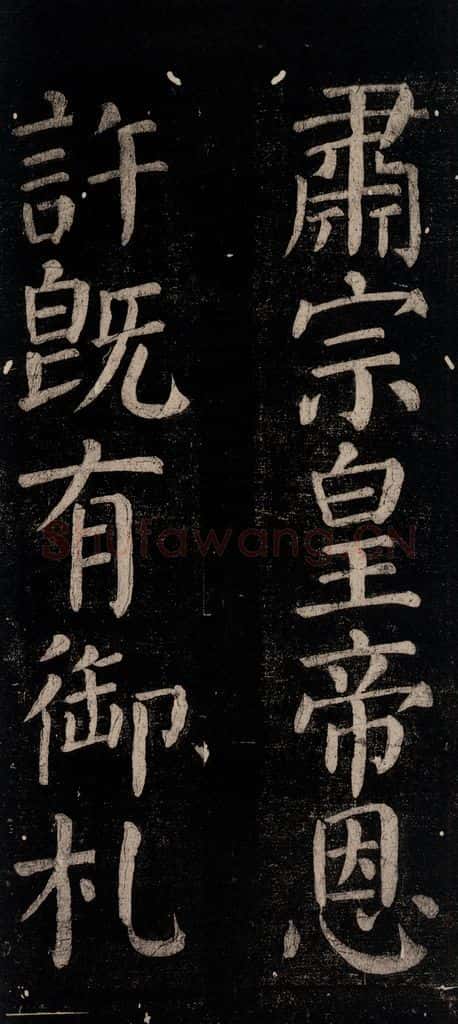 肅宗皇帝恩
許既有御札
Shufawang.CN